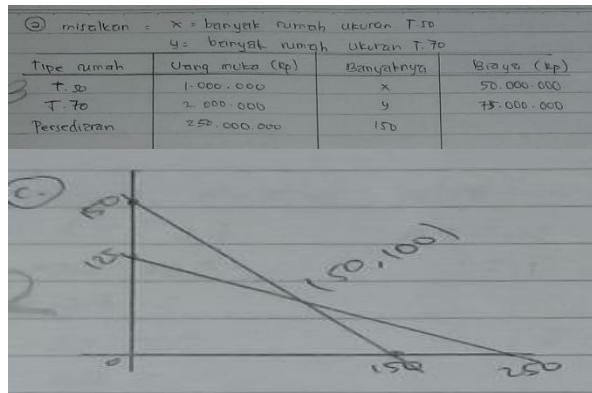 a misalkan = x = banyak rumah ukuran T.50
y = banyak rumah ukuran T.70
Tipe rumah Uang muka (Rp) Banyaknya Biaya (Rp)
T.50 1.000.000 x 50.000.000
T.70 2.000.000 y 75.000.000
Persediaan 250.000.000 150
C.
150
125
(50,100)
0
150
250